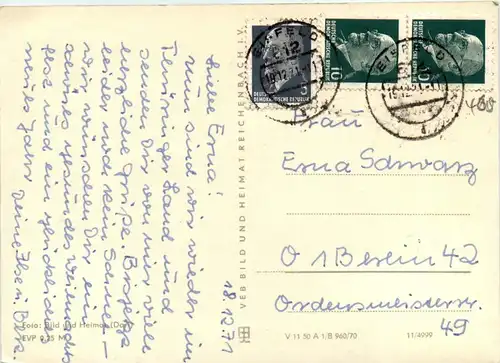 Liebe Erna!
Nun sind wir wieder im
Thüringer Land und
senden Dir von hier viele
herzliche Grüße. Bisher
leider noch kein Schnee.
Wir wünschen Dir ein
schönes gesundes Weihnachts-
fest und ein glückliches
neues Jahr
Deine Ilse
18.12.71
Foto: Bild und Heimat
EVP 0,25 M
VEB BILD UND HEIMAT REICHENBACH i. V.
V 11 50 A 1/B 960/70
11/4999
EISFELD
18.12.71
DEUTSCHE
DEMOKRATISCHE REPUBLIK
10
480
Frau
Erna Schwarz
O 1 Berlin 42
Ordensmeisterstr.
49